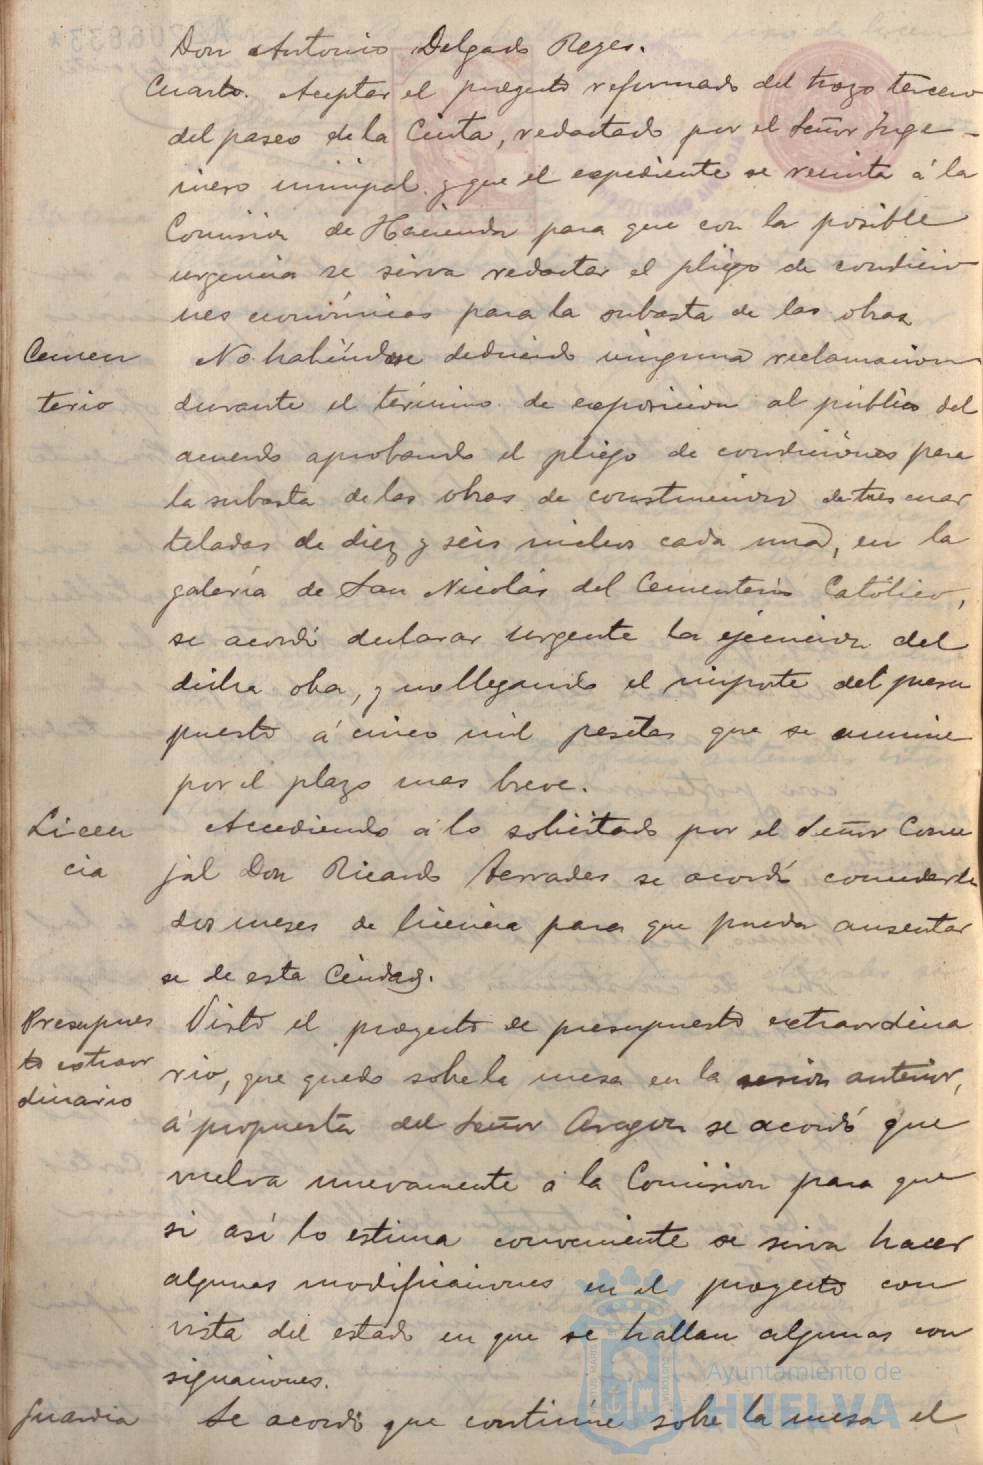 Don Antonio Delgado Reyes.
Cuarto. Aceptar el proyecto reformado del trozo tercero
del paseo de la Cinta, redactado por el Señor Inge-
niero municipal y que el expediente se remita á la
Comision de Hacienda para que con la posible
urgencia se sirva redactar el pliego de condicio
nes económicas para la subasta de las obras
Cemen
terio
No habiéndose deducido ninguna reclamacion
durante el término de exposicion al público del
acuerdo aprobando el pliego de condiciones para
la subasta de las obras de construccion de tres cuar
teladas de diez y seis nichos cada una, en la
galería de San Nicolás del Cementerio Católico,
se acordó declarar urgente la ejecucion del
dicha obra, y no llegando el importe del presu
puesto á cinco mil pesetas que se anuncie
por el plazo mas breve.
Licen
cia
Accediendo á lo solicitado por el Señor Conce
jal Don Ricardo Terrades se acordó concederle
dos meses de licencia para que pueda ausentar
se de esta Ciudad.
Presupues
to extraor
dinario
Visto el proyecto de presupuesto extraordina
rio, que quedó sobre la mesa en la sesion anterior,
á propuesta del Señor Aragon se acordó que
vuelva nuevamente á la Comision para que
si así lo estima conveniente se sirva hacer
algunas modificaciones en el proyecto con
vista del estado en que se hallan algunas con
signaciones.
Guardia
Se acordó que continúe sobre la mesa el
Ayuntamiento de
HUELVA